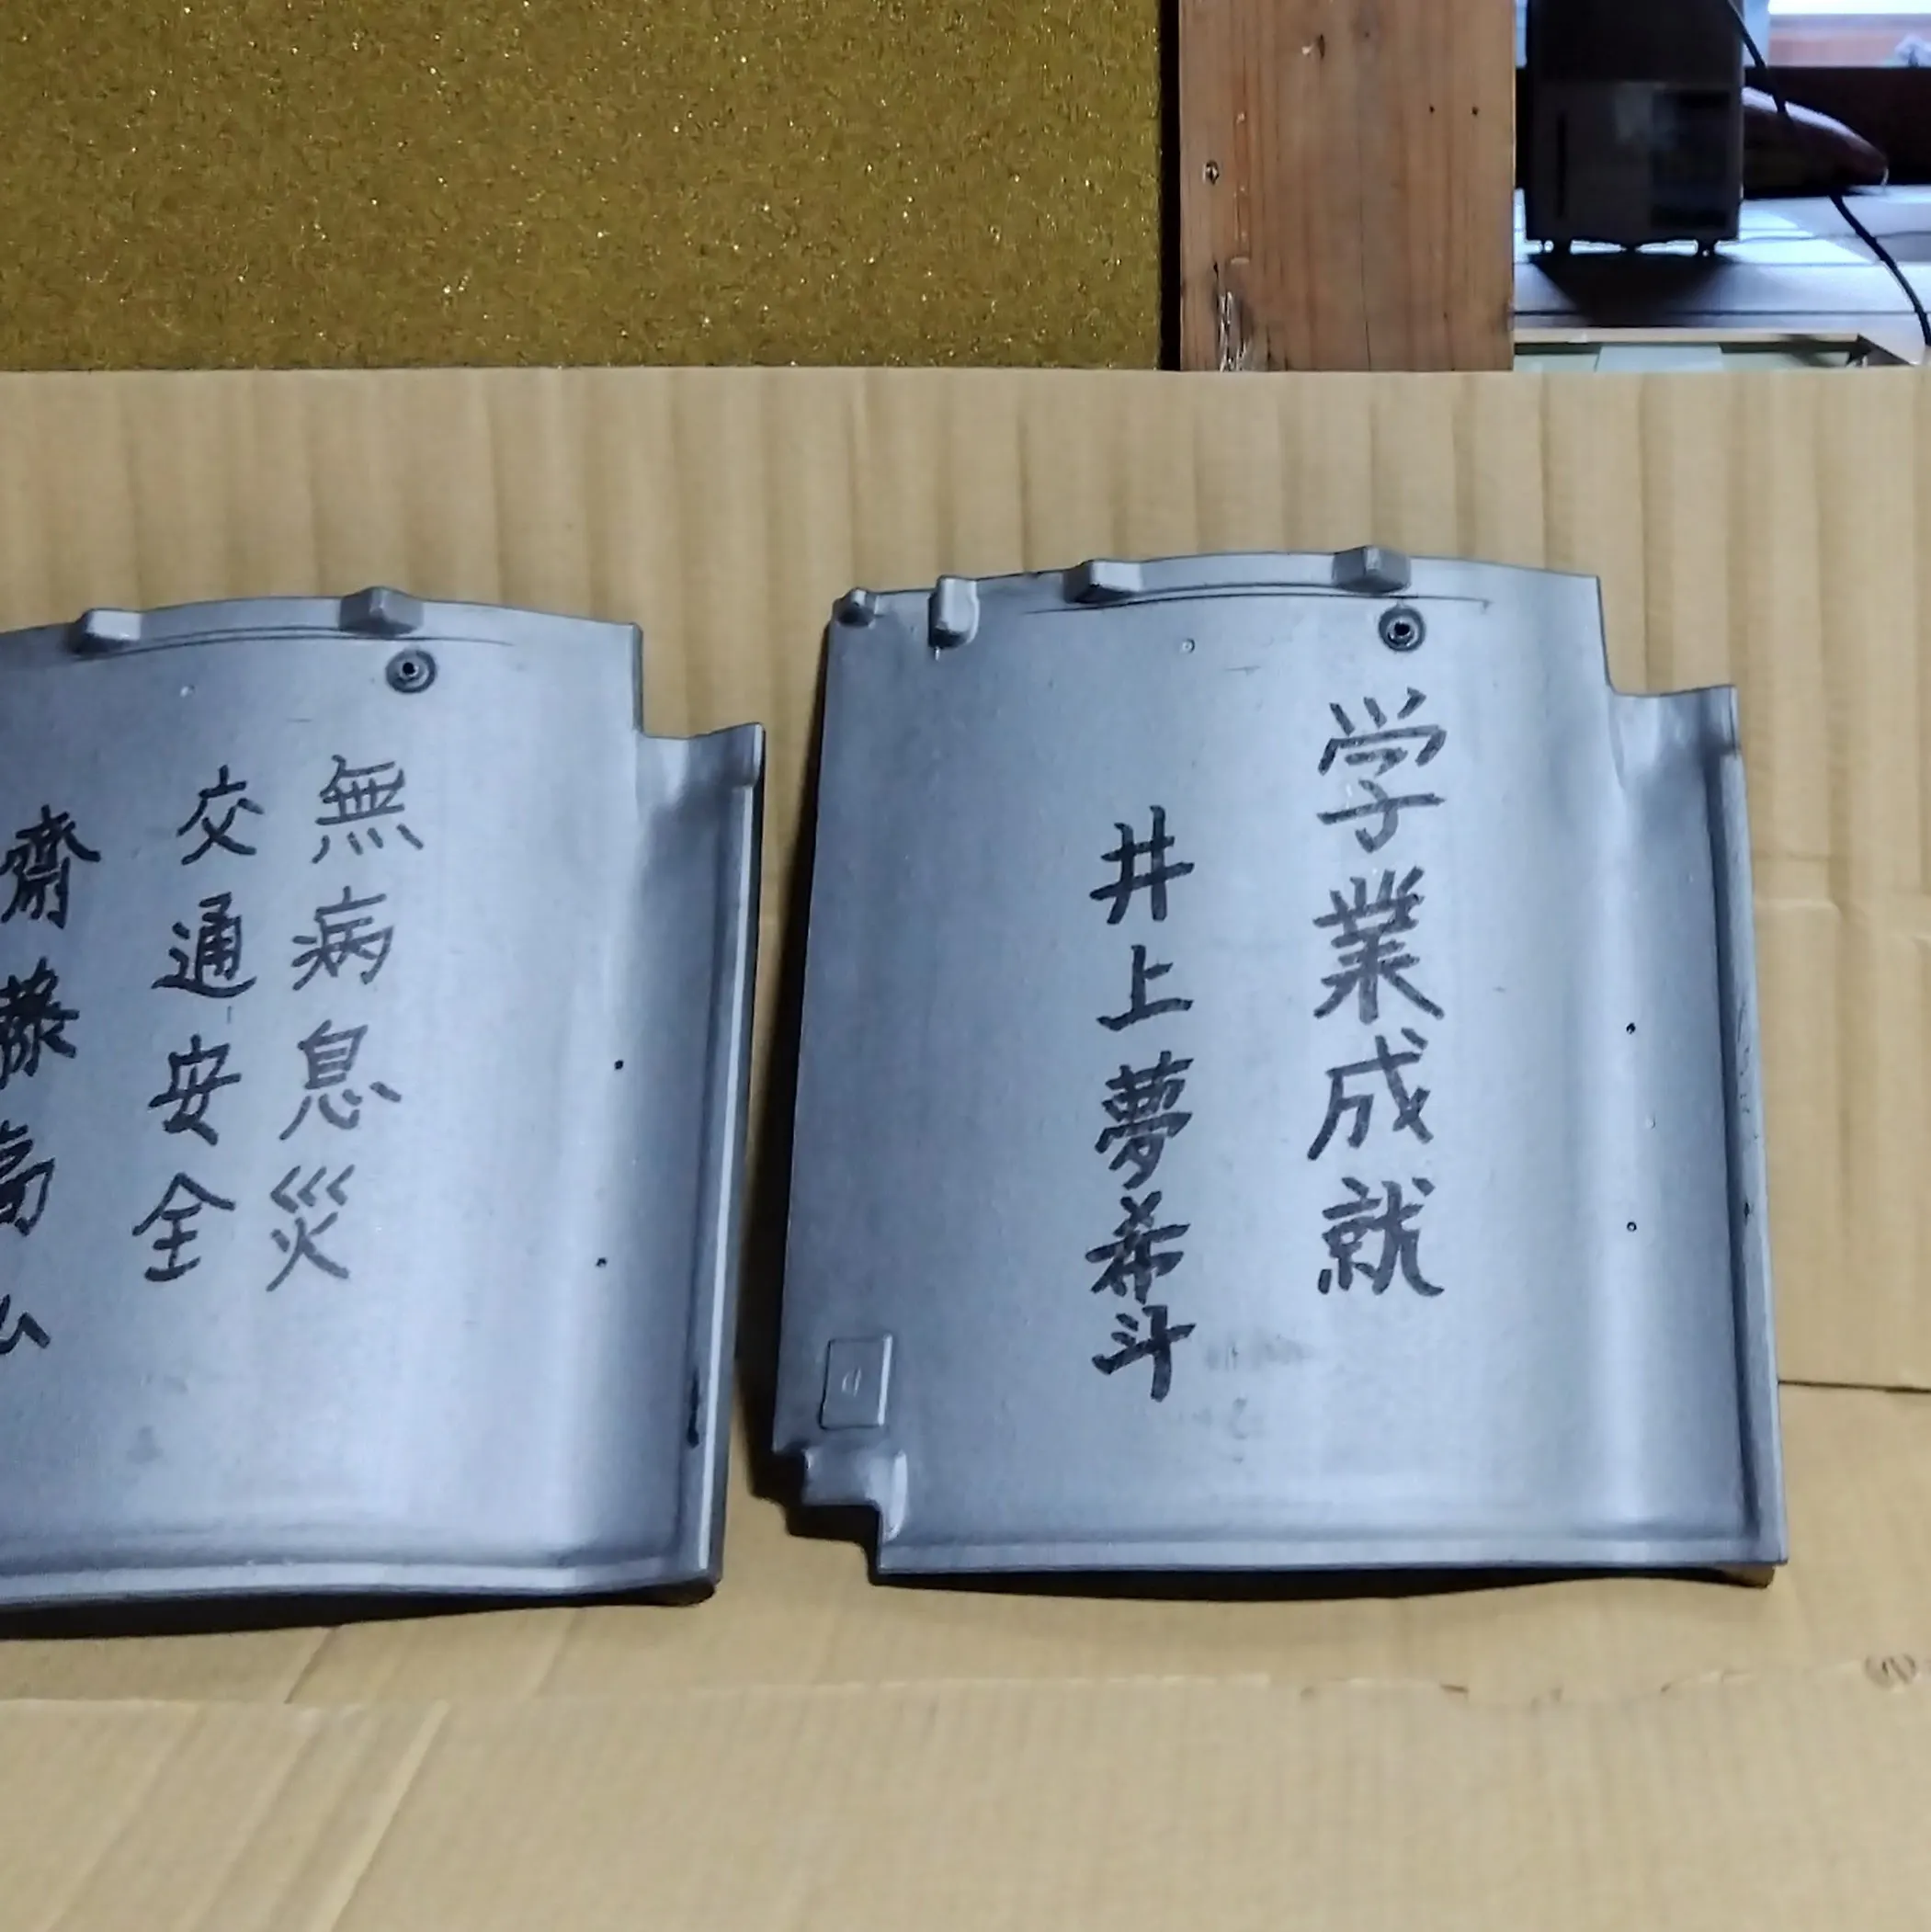 無病息災
交通安全
齋藤高
学業成就
井上夢希斗